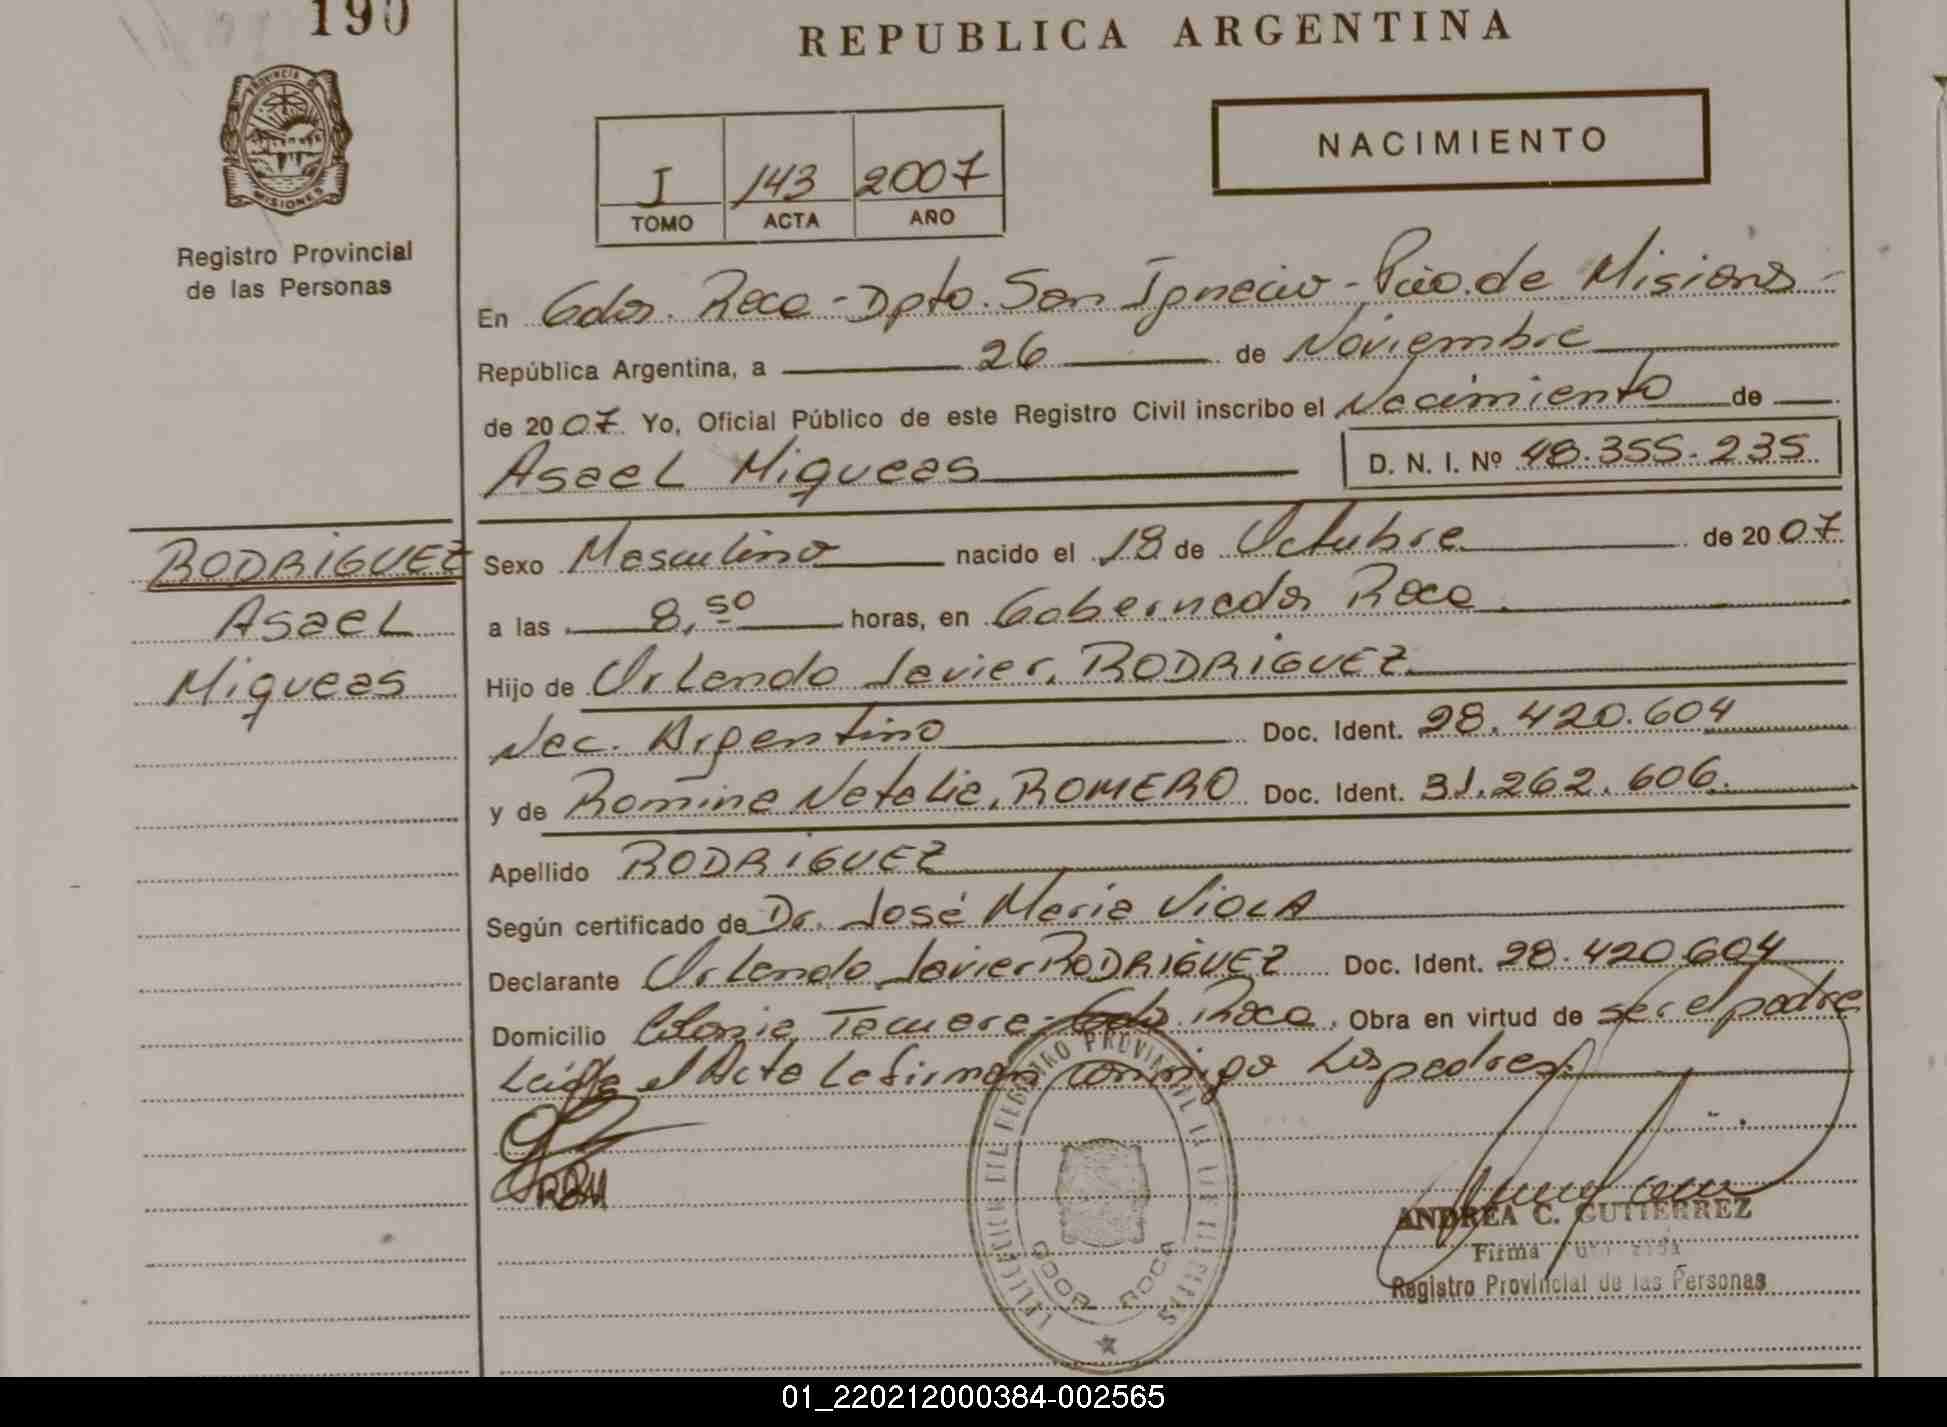 190
REPUBLICA ARGENTINA
PROVINCIA DE
MISIONES
Registro Provincial
de las Personas
NACIMIENTO
I 143 2007
TOMO ACTA AÑO
En Gdor. Roca - Dpto. San Ignacio - Pcio. de Misiones -
República Argentina, a 26 de Noviembre
de 2007. Yo, Oficial Público de este Registro Civil inscribo el Nacimiento de
Asael Miqueas
D. N. I. Nº 48.355.235
RODRIGUEZ
Asael
Miqueas
Sexo Masculino nacido el 18 de Octubre de 2007
a las 8,50 horas, en Gobernador Roca.
Hijo de Orlando Javier, RODRIGUEZ
Nac. Argentino Doc. Ident. 28.420.604
y de Romina Natalia, ROMERO Doc. Ident. 31.262.606.
Apellido RODRIGUEZ
Según certificado de Dr. José Maria VIOLA
Declarante Orlando Javier RODRIGUEZ Doc. Ident. 28.420.604
Domicilio Colonia Tacuara - Gdor. Roca. Obra en virtud de ser el padre
Leída el Acta la firman conmigo los padres.
GDOR ROCA
ANDREA C. GUTIERREZ
Firma
Registro Provincial de las Personas
01_220212000384-002565